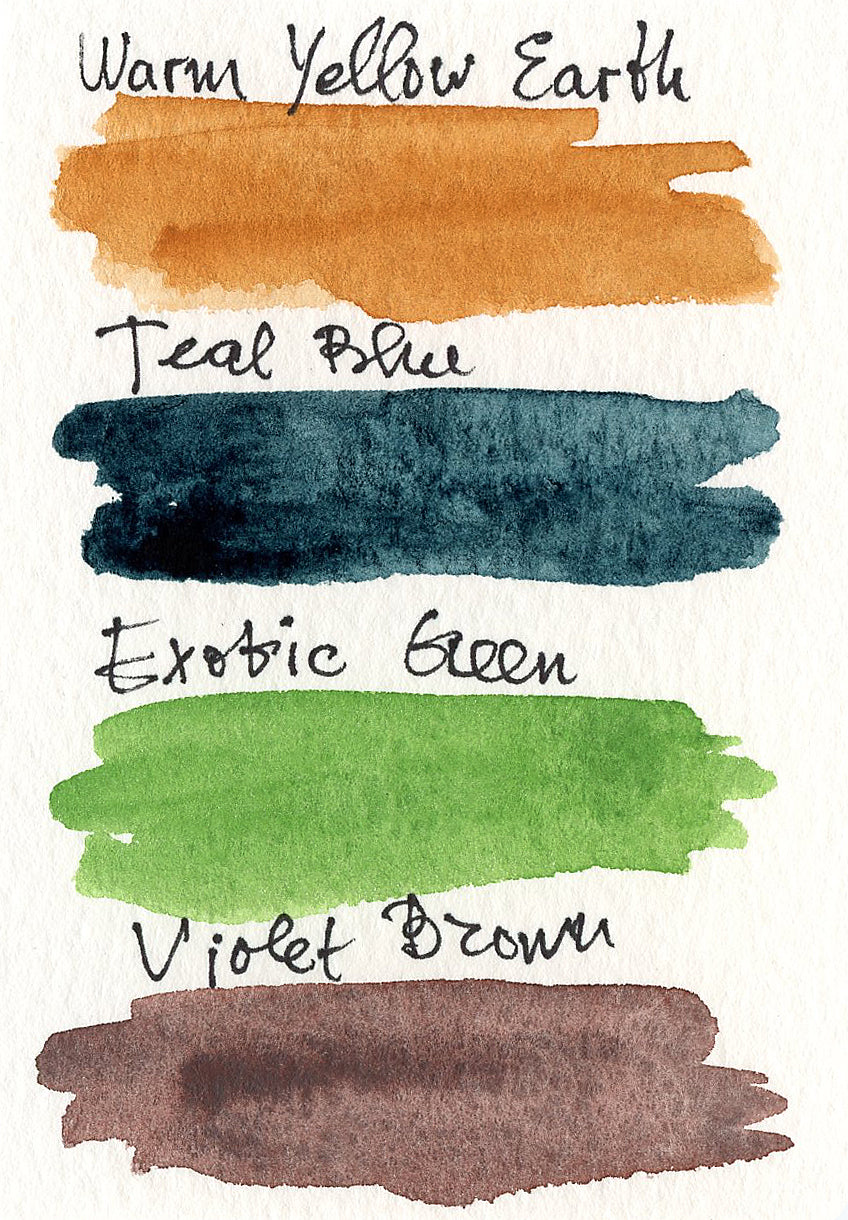 Warm Yellow Earth
Teal Blue
Exotic Green
Violet Brown